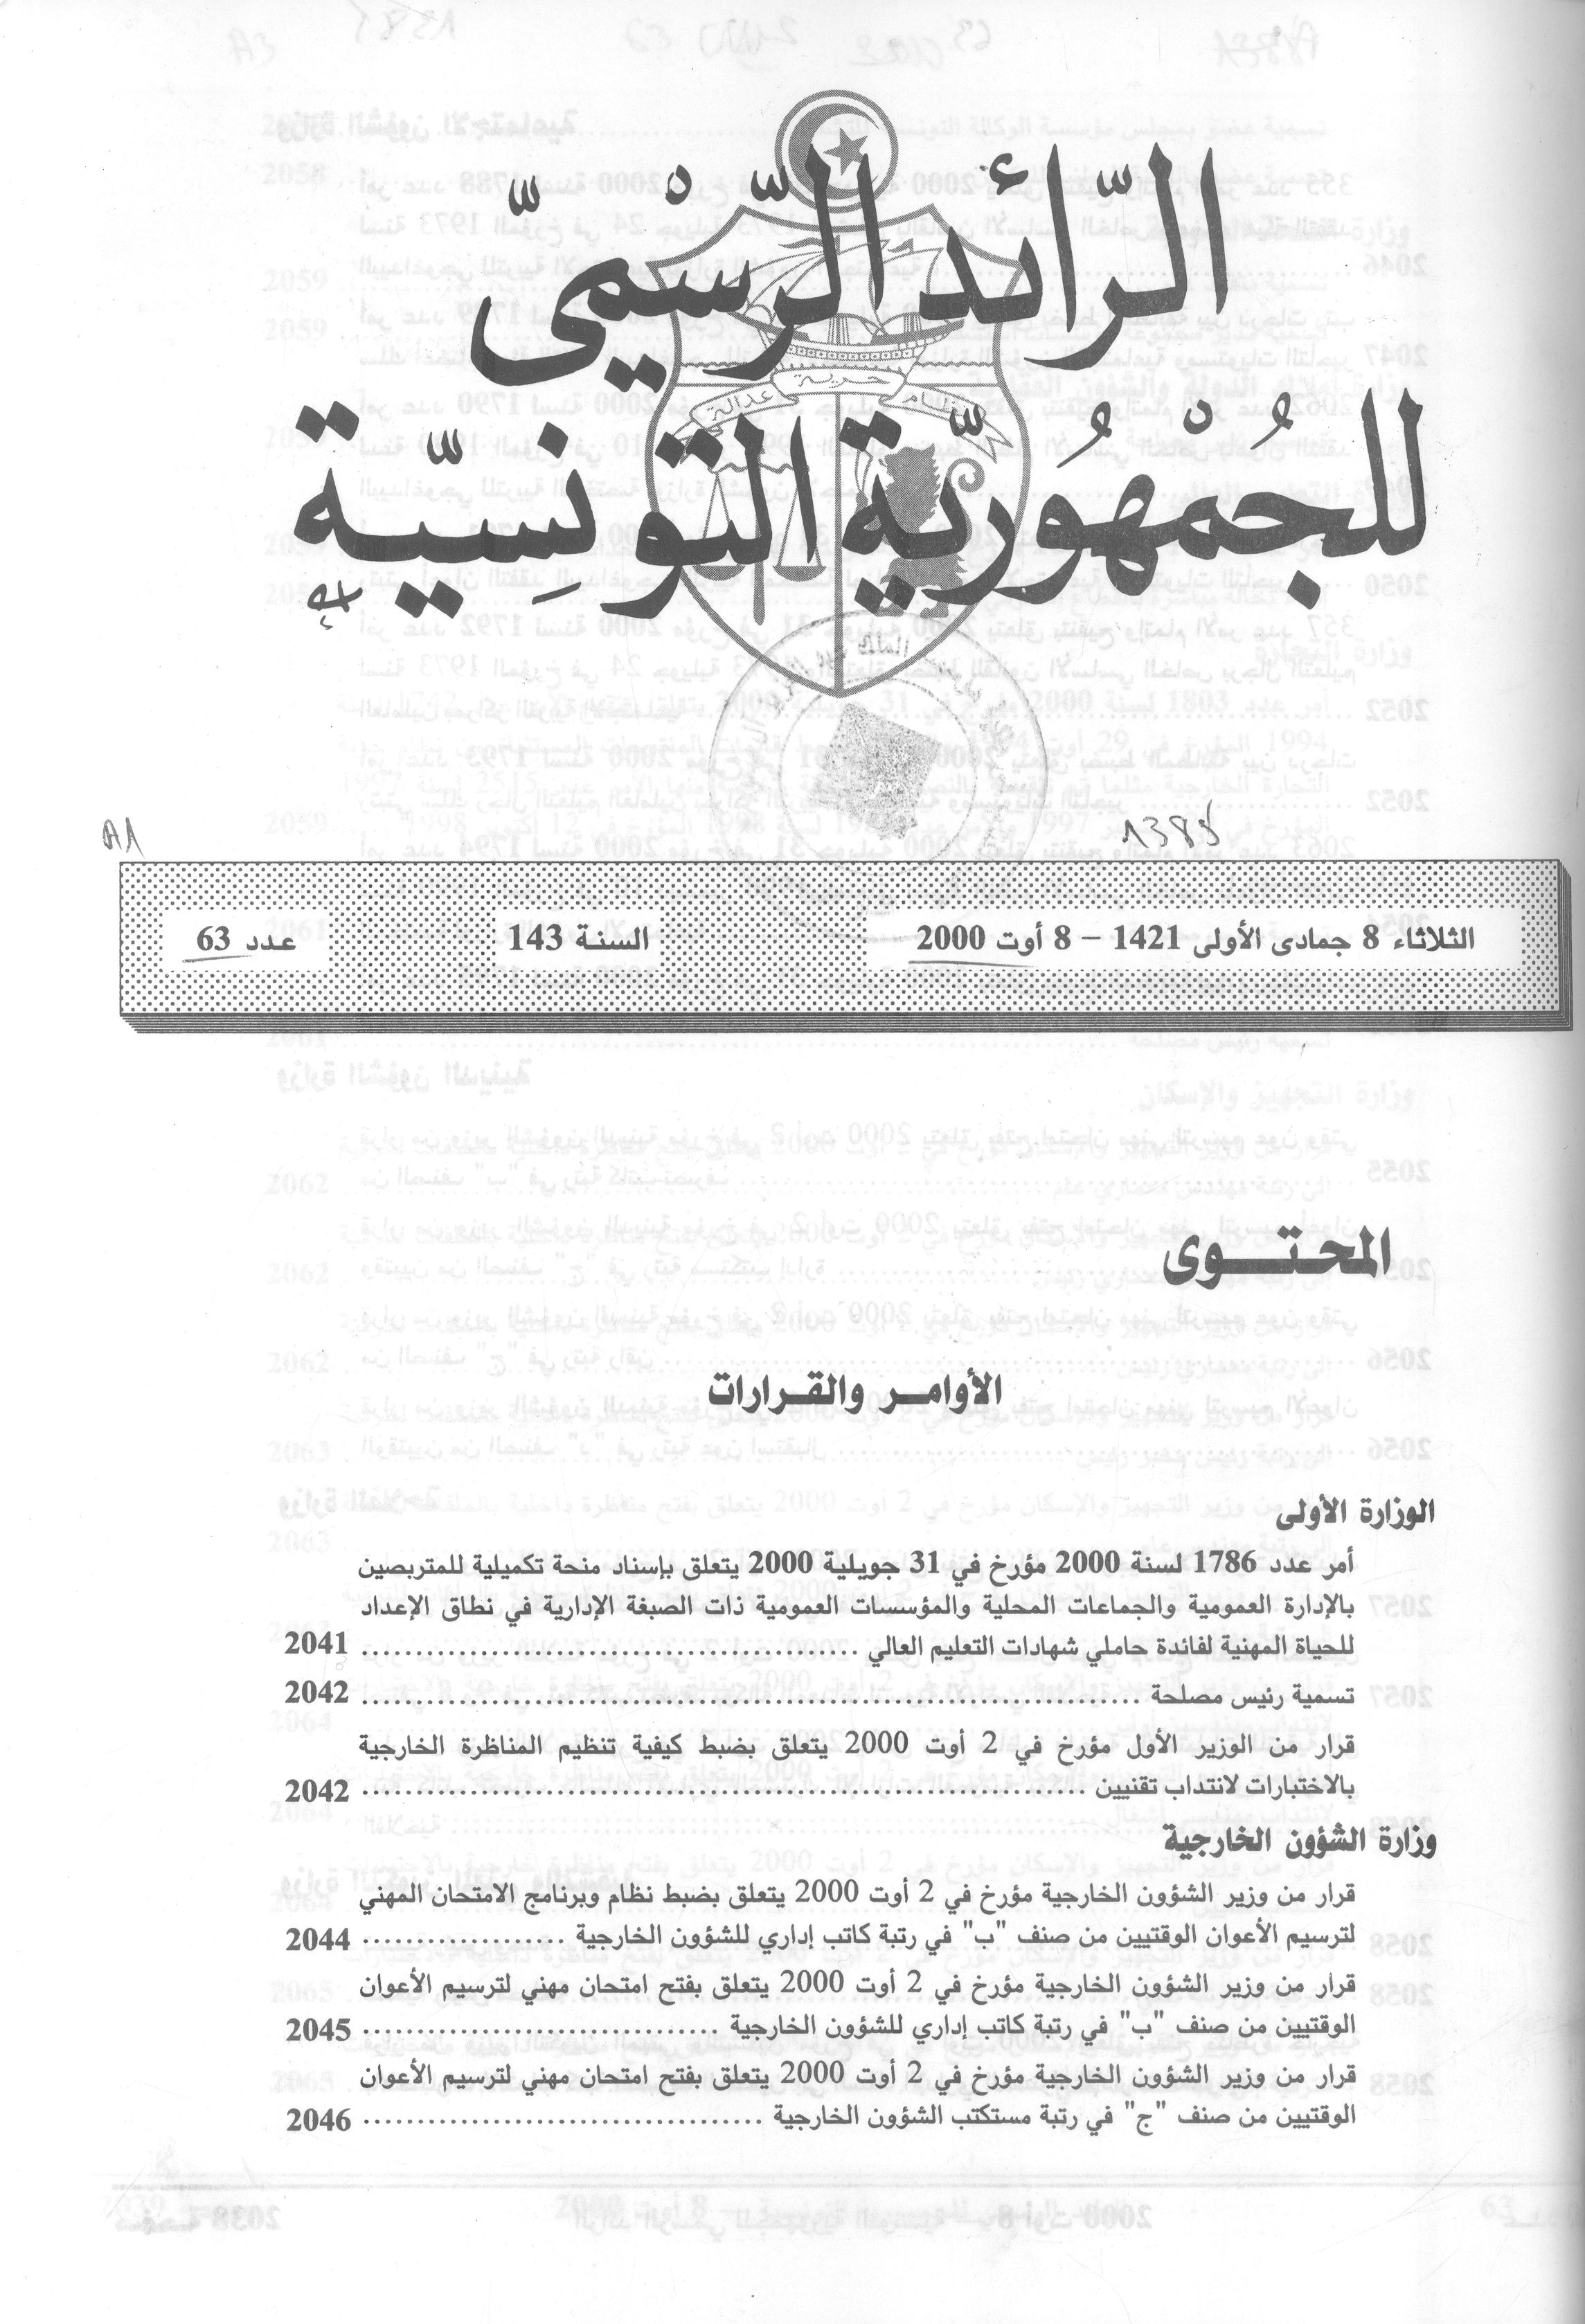 الرّائد الرّسْميّ
للجُمْهُوريّة التّونِسيّة
نظام
حرية
عدالة
A1
الثلاثاء 8 جمادى الأولى 1421 – 8 أوت 2000
السنة 143
عدد 63
المحتوى
الأوامر والقرارات
الوزارة الأولى
أمر عدد 1786 لسنة 2000 مؤرخ في 31 جويلية 2000 يتعلق بإسناد منحة تكميلية للمتربصين
بالإدارة العمومية والجماعات المحلية والمؤسسات العمومية ذات الصبغة الإدارية في نطاق الإعداد
للحياة المهنية لفائدة حاملي شهادات التعليم العالي ................................................ 2041
تسمية رئيس مصلحة ........................................................................... 2042
قرار من الوزير الأول مؤرخ في 2 أوت 2000 يتعلق بضبط كيفية تنظيم المناظرة الخارجية
بالاختبارات لانتداب تقنيين ...................................................................... 2042
وزارة الشؤون الخارجية
قرار من وزير الشؤون الخارجية مؤرخ في 2 أوت 2000 يتعلق بضبط نظام وبرنامج الامتحان المهني
لترسيم الأعوان الوقتيين من صنف "ب" في رتبة كاتب إداري للشؤون الخارجية .................... 2044
قرار من وزير الشؤون الخارجية مؤرخ في 2 أوت 2000 يتعلق بفتح امتحان مهني لترسيم الأعوان
الوقتيين من صنف "ب" في رتبة كاتب إداري للشؤون الخارجية .................................. 2045
قرار من وزير الشؤون الخارجية مؤرخ في 2 أوت 2000 يتعلق بفتح امتحان مهني لترسيم الأعوان
الوقتيين من صنف "ج" في رتبة مستكتب الشؤون الخارجية ...................................... 2046